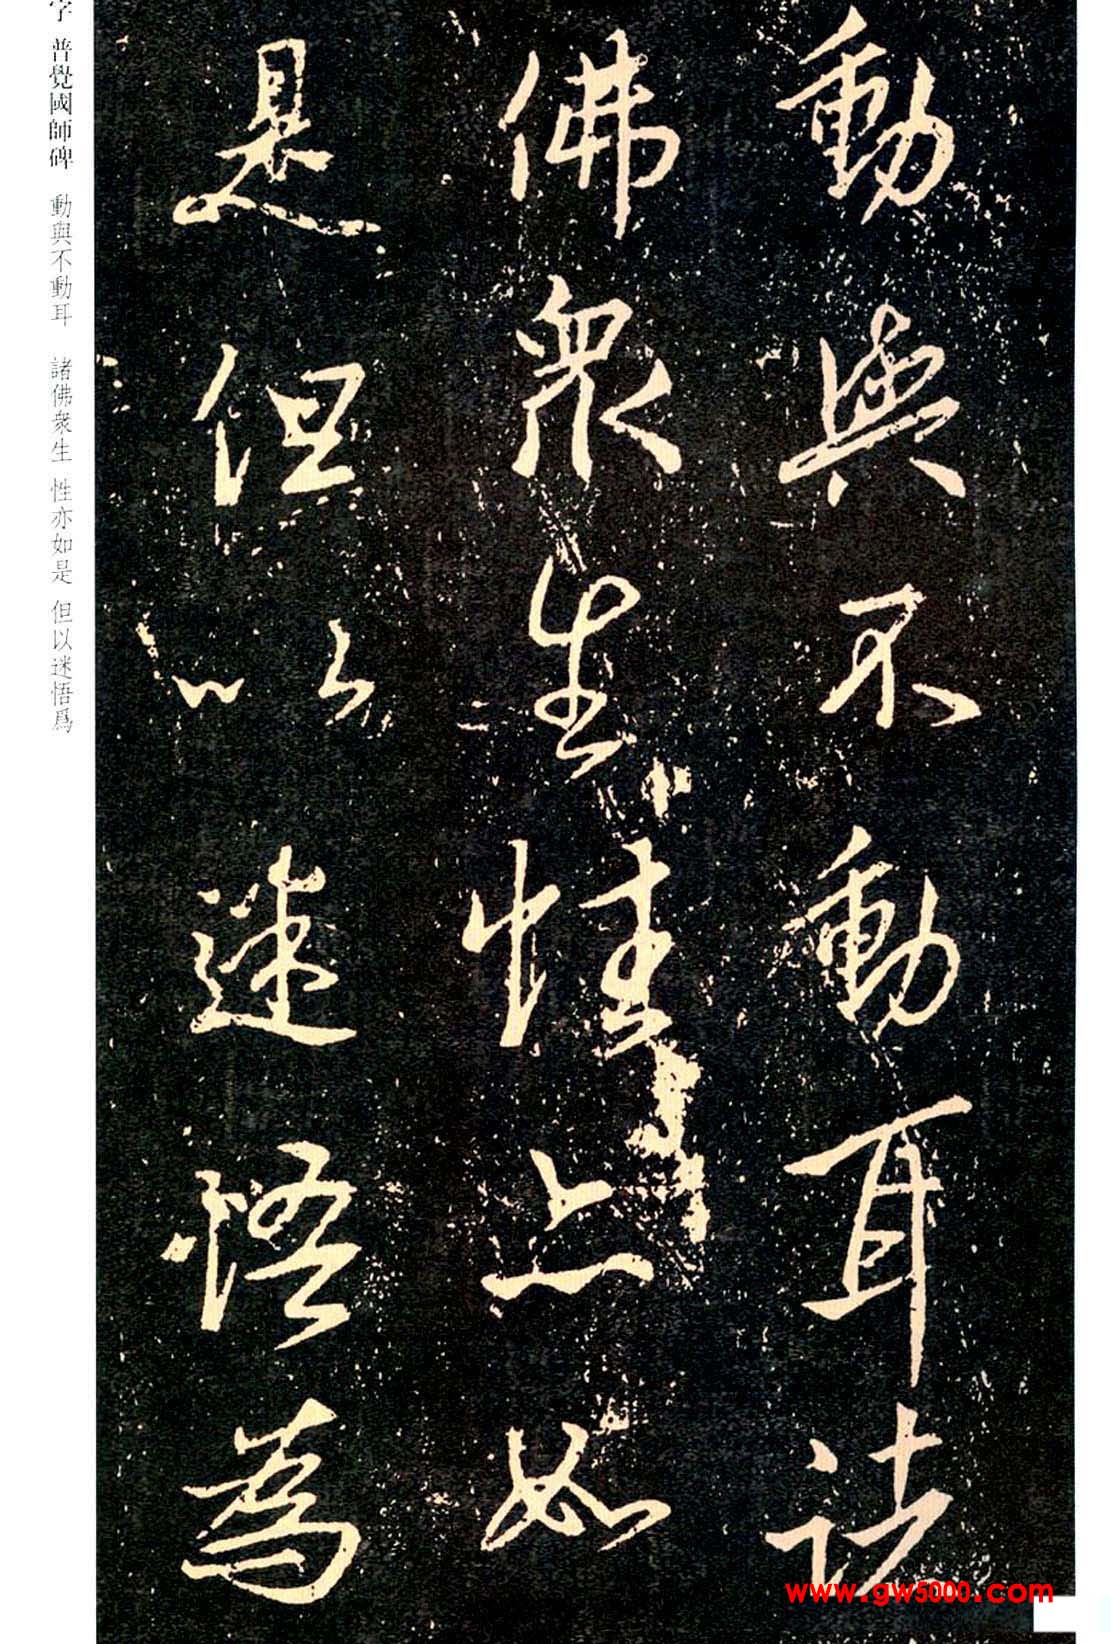 動與不動耳諸
佛衆生性亦如
是但以迷悟為
字 普覺國師碑 動與不動耳 諸佛衆生 性亦如是 但以迷悟爲
www.gw5000.com